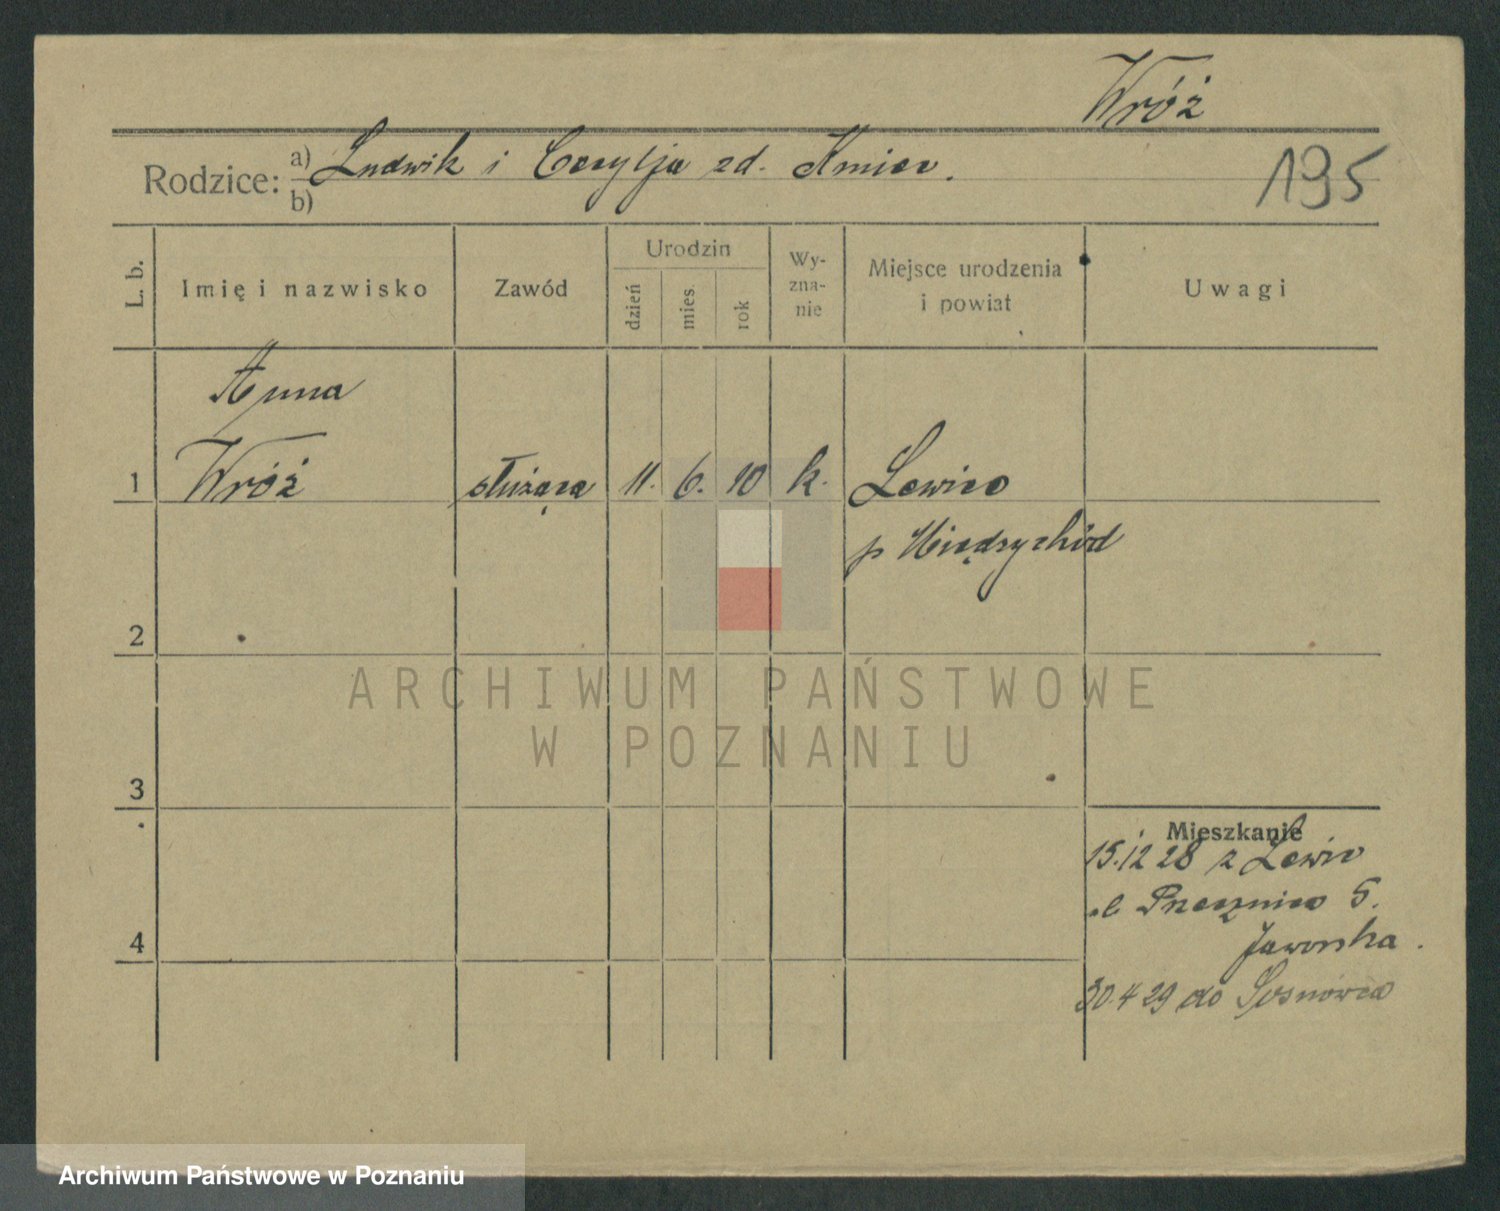 Wróż
Rodzice: a) Ludwik i Cecylja zd. Kmiec.
b)
195
L. b.
Imię i nazwisko
Zawód
Urodzin
dzień
mies.
rok
Wy-
zna-
nie
Miejsce urodzenia
i powiat
Uwagi
Anna
1 Wróż służąca 11. 6. 10 k. Lewice
p Międzychód
2
ARCHIWUM PAŃSTWOWE
W POZNANIU
3
Mieszkanie
15.12 28 z Lewic
Przecznica 5.
Jaworska.
4
30.4 29 do Sosnowca
Archiwum Państwowe w Poznaniu